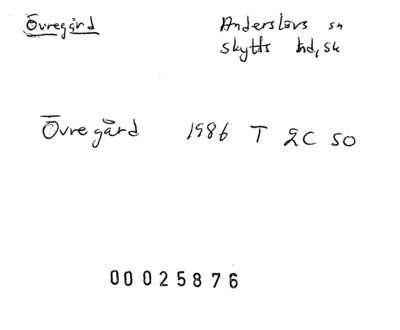 Övregård Anderslövs sn
Skytts hd, Sk
Övregård 1986 T 2C SO
00025876